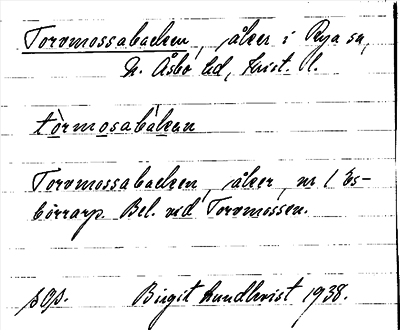 Torvmossabacken, åker i Rya sn,
N. Åsbo hd, Krist. l.
tòrmosabàkan
Torvmossabacken, åker, nr 1 Es-
börrarp. Bel. ved Torvmossen.
sGs. Birgit Lundkvist 1938.